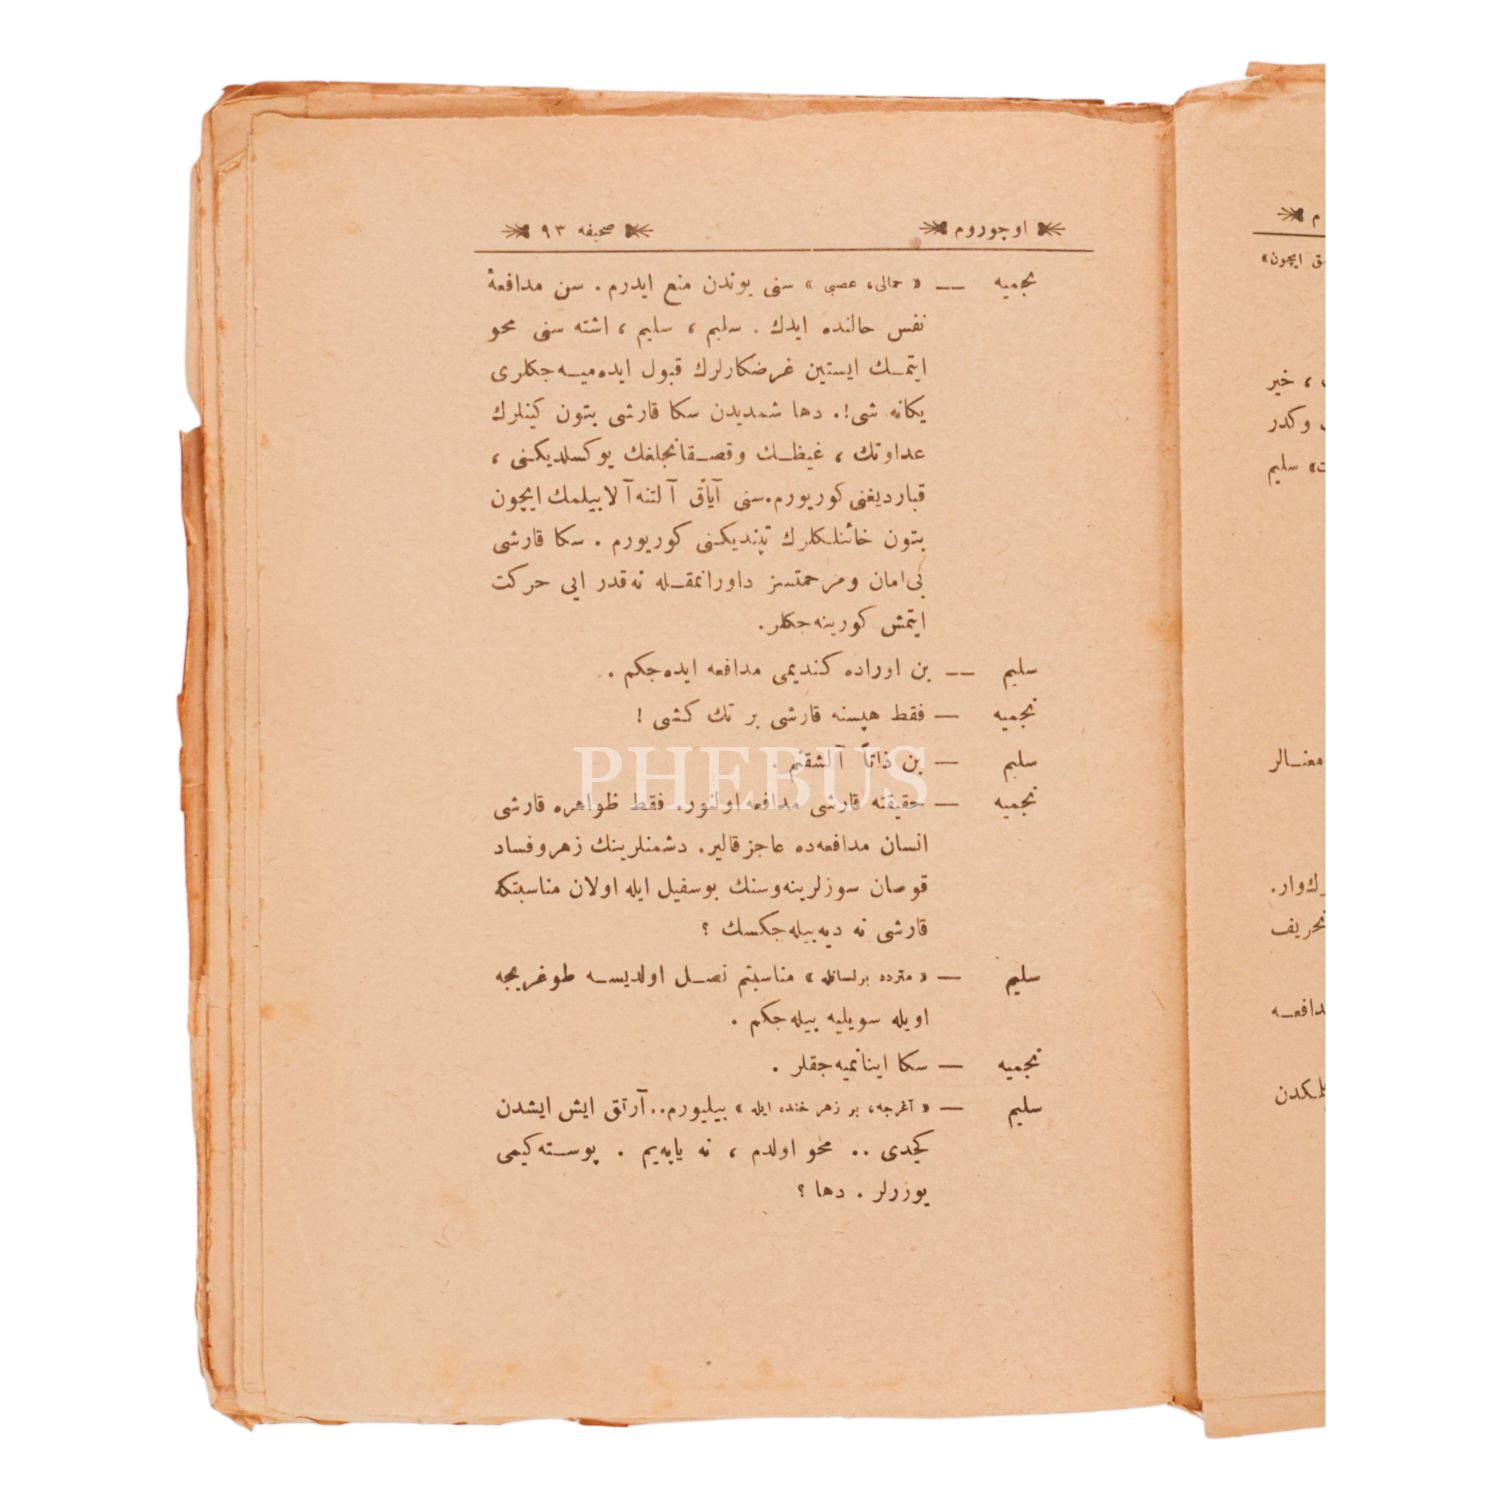 اوچوروم
صحیفه ۹۳
نجمیه — « حمالی، عصبی » سنی بوندن منع ایدرم . سن مدافعهٔ
نفس حالنده ایدك . سلیم ، سلیم ، اشته سنی محو
ایتمـك ایستین غرضكارلرك قبول ایده‌میـه‌جكلری
یكانه شی!. دها شمدیدن سكا قارشی بتون كینلرك
عداوتك ، غیظـك وقصـقانجلغك یوكسلدیكـنی ،
قباردیغنی كوریورم.سنی آیاق آلتنه آلابیلمك ایچون
بتون خائنلـكلرك تپندیكـنی كوریورم . سكا قارشی
بی‌امان ومرحمتسز داورانمقـله نه‌قدر ایی حركت
ایتمش كورینه‌جكلر.
سلیم — بن اوراده كندیمی مدافعه ایده‌جكم .
نجمیه — فقط هپسنه قارشی بر تك كشی !
سلیم — بن ذاتاً آلشقنم .
نجمیه — حقیقته قارشی مدافعه‌اولنور. فقط ظواهره قارشی
انسان مدافعه‌ده عاجزقالیر. دشمنلرینك زهروفساد
قوصان سوزلرینه‌وسنك بوسفیل ایله اولان مناسبتكه
قارشی نه دیه‌بیله‌جكسك ؟
سلیم — « متردد برلسانله » مناسبتم نصـل اولدیسـه طوغریجه
اویله سویلیه بیله‌جكم .
نجمیه — سكا اینانمیه‌جقلر .
سلیم — « آغرجه، بر زهر خنده ایله » بیلیورم..آرتق ایش ایشدن
كچدی .. محو اولدم ، نه یاپه‌یم . پوسـته‌كیمی
یوزرلر . دها ؟
م
ق ایچون»
، خیر
وكدر
» سلیم
معنـالر
ك‌وار.
تحریف
دافعـه
لكدن
PHEBUS